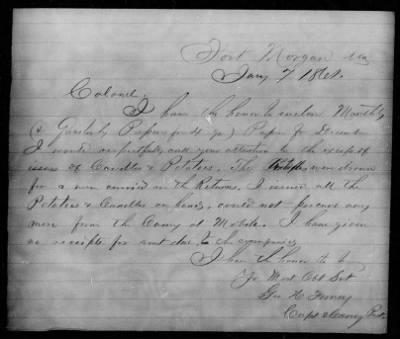 Fort Morgan Ala
Jany 7 1864.
Colonel,
I have the honor to enclose Monthly
(& Quarterly Papers for 4 qr) Papers for December
I would respectfully call your attention to the
issues of Candles & Potatoes. The were drawn
for a men carried on the Returns. I issued all the
Potatoes & Candles on hand, could not procure any
more from the Comsy at Mobile. I have given
no receipts for amt due to the companies
I have the honor to be
Yr Most Obt Svt
Geo H
Capt & Comsy Post